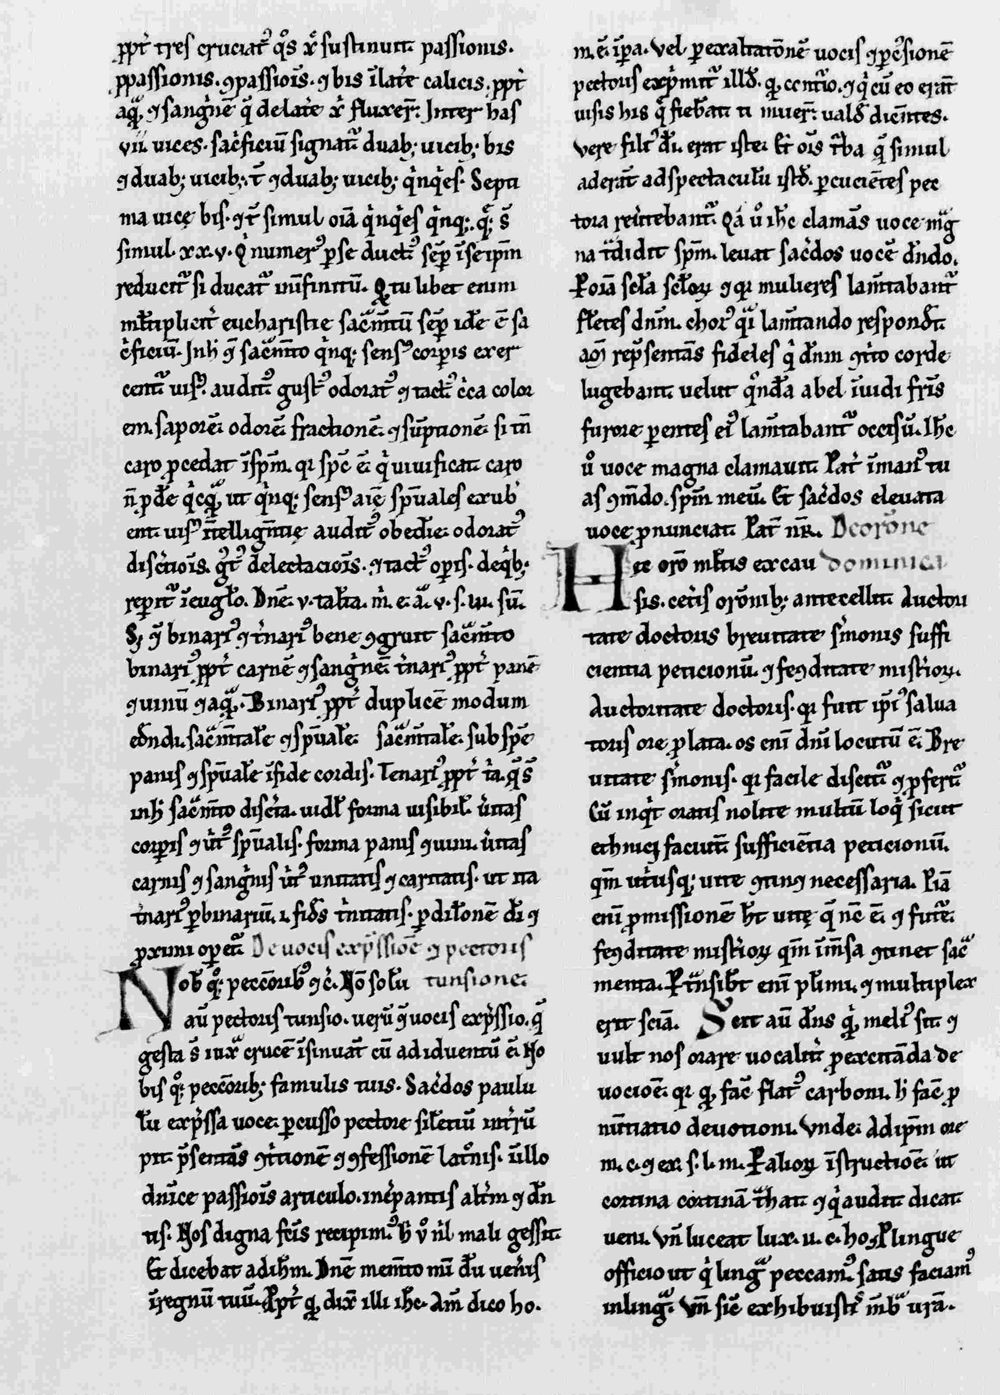 ꝓpt̉ tres cruciat᷒ q̊s xp̄ sustinuit. passionis.
ꝓpassionis. ⁊passiois̄. ⁊ bis īlat̄e calicis. ꝓpt̉
aq̄. ⁊ sanguīe q̄ de lat̄e xp̄i fluxer̄. Inter has
vii. vices. sac̉ficiū signat᷒ duab; uicib; bis
⁊ duab; uicib; t̄ ⁊ duab; uicib; q̉nq̉es. Septi
ma uice bis. ⁊ t̄ simul oīa q̉nq̉es q̉nq;. q̄ s̄
simul. xx.v. Q̉ numer᷒ ꝑ se duct᷒ semꝑ ī se ip̄m
reducit᷒ si ducat᷒ in īfinitū. Q̄ tu libet enim
ml̄tiplicet᷒ eucharistie sac̄m̄tū semꝑ idē ē sa
c̉ficiū. In h̄ ḡ sac̄m̄to q̉nq; sens᷒ corꝑis exer
cent᷒ uis᷒. audit᷒ gust᷒ odorat᷒ ⁊ tact᷒ c̉ca color
em. saporē. odorē. fractionē. ⁊ sūptionē. si tn̄
caro ꝓcedat ī sp̄m. q̉ sp̄c ē. q̉ uiuificat. caro
n̄ ꝓdē q̉cq̄. ut q̉nq; sens᷒ aīe sp̄uales exub̉
ent. uis᷒ ītelligētie. audit᷒ obediē. odorat᷒
disc̉tiois̄. gust᷒ delectaciois̄. ⁊ tact᷒ oꝑis. de q̉b;
reꝑit᷒ ī euglo. Dn̄e. v. talīa. m̉. e. ā. v. s. lu. sū.
S; ⁊ binari᷒ ⁊ t̉nari᷒ bene ⁊gruit sac̄m̄to
binari᷒ ꝓpt̉ carnē ⁊ sanguinē. t̉nari᷒ ꝓpt̉ panē
⁊ uinū ⁊ aq̄. Binari᷒ ꝓpt̉ duplicē modum
edēndi. sac̄m̄talē ⁊ sp̄ualē. sac̄m̄talē. sub spē
panis ⁊ sp̄ualē ī fide cordis. Tenari᷒ ꝓpt̉ t̉a. q̄ s̄
in h̄ sac̄m̄to disc̉ta. uidl̄ forma uisibil̄. u̇itas
corꝑis ⁊ u̇t᷒ sp̄ualis. forma panis ⁊ uini. u̇itas
carnis ⁊ sanguīis. u̇t᷒ unitatis ⁊ caritatis. ut ita
t̉nari᷒ ꝑ binariū. i. fid̄s t̉nitatis. ꝑ dil̄onē dī ⁊
ꝓximi oꝑet᷒. De uocis exp̄ssiōe ⁊ pectoris
Nob̄ q; peccōrib᷒ ⁊c̉. Nō solū tunsione.
aū pectoris tunsio. uerū ⁊ uocis exp̄ssio. q̄
gesta s̄ iux̄ crucē īsinuat. cū ad iduentū ē. No
bis q; peccōrib; famulis tuis. Sac̉dos paulu
lū exp̄ssa uoce. ꝑcusso pectore silētiū int̉rū
pit. p̄sentās ⁊t̉tionē ⁊ ⁊fessionē lat̉onis. ī illo
dn̄ice passiois̄ articulo. inc̉pantis alt̉m ⁊ dn̄
tis. Nos digna fc̄is recipim᷒. h̄ v᷒ nil mali gessit.
Et dicebat ad ih̄m. Dn̄e mem̄to mī dū uen̉is
ī regnū tuū. Ꝓpt̉ q̄ dix̄ illi ih̄c. Am̄ dico ho.
m. ē. ip̄a. Vel ꝑ exaltatōnē uocis ⁊ ꝑc̉sionē
pectoris exp̉mit᷒ ill̄d. q̄ cent̉io. ⁊ q̉ cū eo erāt
uisis his q̄ fiebāt ti muer̄. uald̄ dicētes.
Vere fili᷒ dī. erat iste. Et oīs t̉ba q̄ simul
aderāt ad spectaculū istd̄. ꝑcuciētes pec
tora reūtebant᷒. Q̄a v᷒ ih̄c clamās uoce mag
na t̄didit sp̄m. leuat sac̉dos uocē dn̄do.
P̄ oīa scl̄a scl̄oꝝ ⁊ q̉ mulieres lam̄tabant᷒
flētes dn̄m. chor᷒ q̄i lam̄tando respond̄.
am̄ rep̄sentās fideles q̉ dn̄m ⁊t̉to corde
lugebant. uelut q̉ndā abel īuidi fr̄is
furore ꝑentes ei᷒ lam̄tabant᷒ occisū. Ih̄c
v᷒ uoce magna clamauit. Pat̉ ī man᷒ tu
as ⁊m̄do. sp̄m meū. Et sac̉dos eleuata
uoce ꝓnunciat. Pat̉ nr̄. De orōne
Hec orō ml̄tis ex cau dominica
sis. cet̉is orōnib; antecellit. Auctori
tate doctoris breuitate s̉monis suffi
cientia peticionū. ⁊ fec̄ditate mist̉ioꝝ.
Auctoritate doctoris. q̉ fuit ip̄i᷒ salua
toris ore ꝓlata. os enī dn̄i locutū ē. Bre
uitate s̉monis. q̉ facile discit᷒ ⁊ ꝓfert᷒
Cū inq̉t oratis nolite multū loq̉ sicut
ethnici faciūt. sufficiētia peticionū.
qm̄ ut̉usq; uite ⁊tinꝫ necessaria. P̄iā
enī ꝓmissionē h̄t uite q̄ nc̄ ē. ⁊ futē.
fec̄ditate mist̉ioꝝ qm̄ īm̄sa ⁊tinet sac̄
menta. P̄t̉nsib̄t enī pl̄imi. ⁊ multiplex
erit sciā. Scit aū dn̄s q̄ meli᷒ sit. ⁊
uult nos orare uocalit̉ ꝑ excitāda de
uociōē. q̉ q̄ facit flat᷒ carboni. h̄ facit ꝓ
nūtiatio deuotioni. Vnde. Ad ip̄m ore
m. c. ⁊ ex. s. l. m. P̄ alioꝝ īstructiōē. ut
cortina cortinā t̉hat. ⁊ q̉ audit. dicat.
ueni. Vn̄ luceat lux. u. c. ho. P̄ lingue
officio ut q̉ lingua peccam᷒. satis faciam᷒
in lingua. Vn̄ sic̄ exhibuistis mb̄ ur̄a.